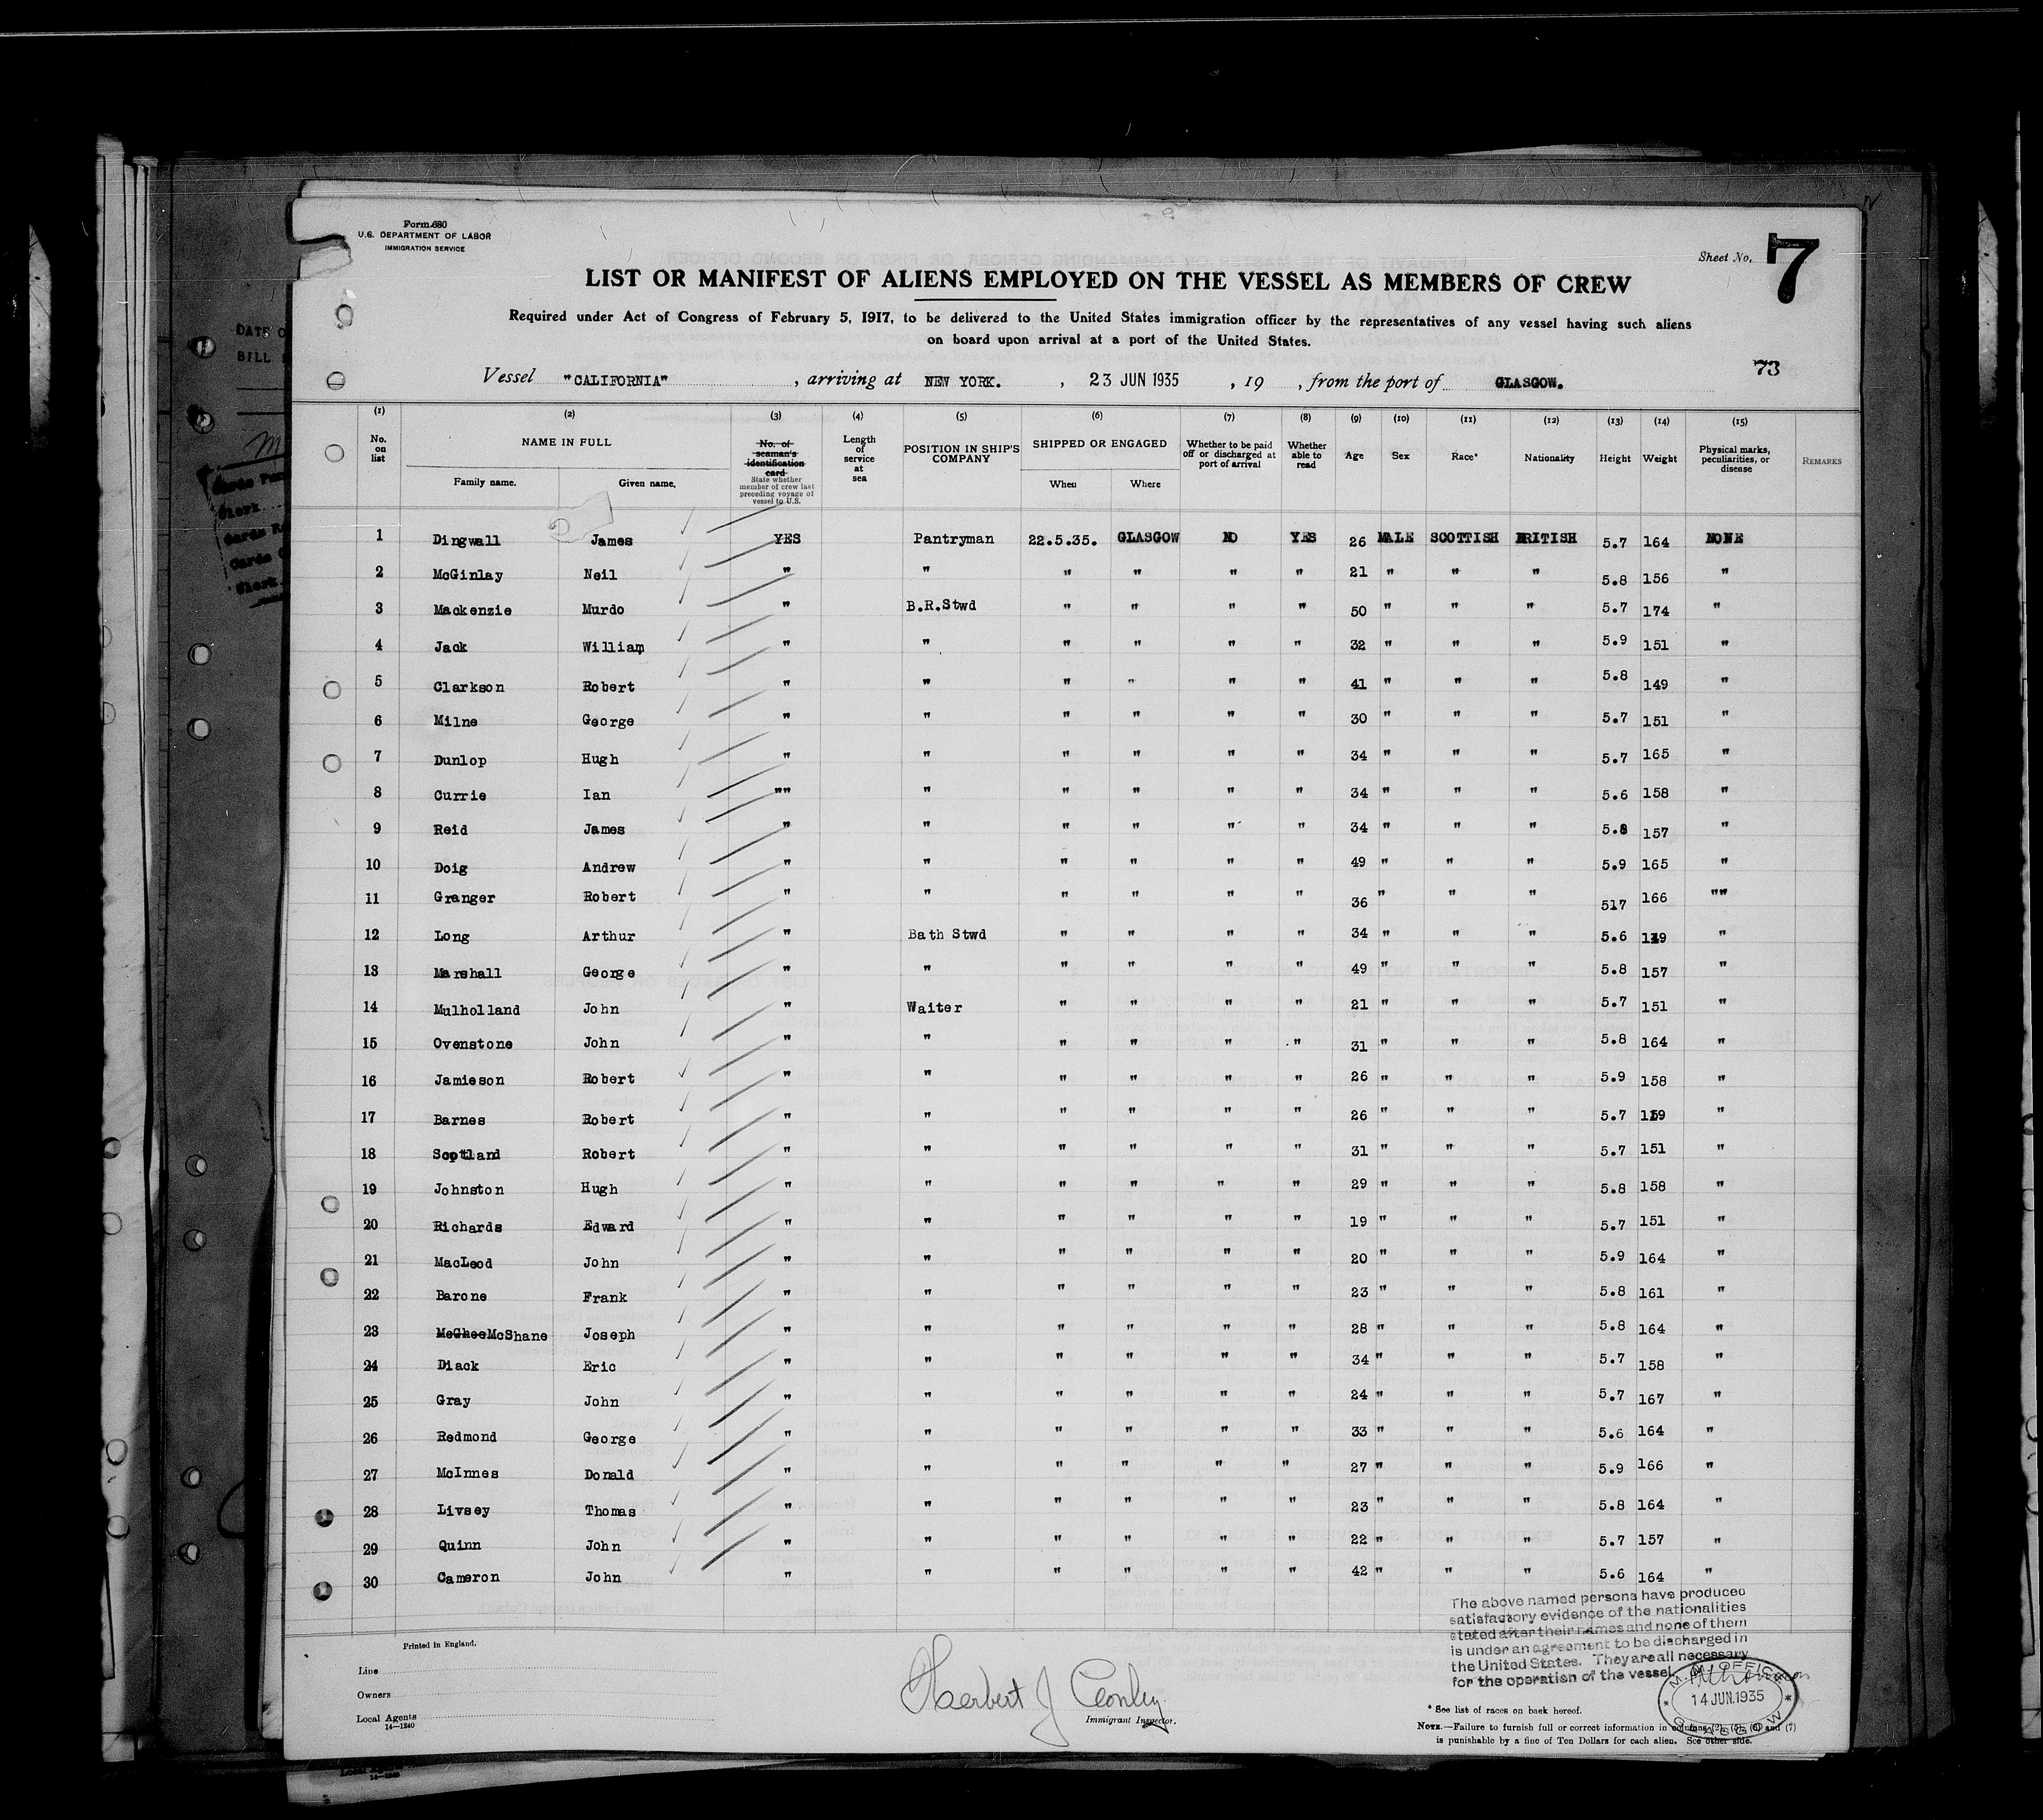 Form 680
U.S. DEPARTMENT OF LABOR
IMMIGRATION SERVICE
Sheet No. 7
LIST OR MANIFEST OF ALIENS EMPLOYED ON THE VESSEL AS MEMBERS OF CREW
Required under Act of Congress of February 5, 1917, to be delivered to the United States immigration officer by the representatives of any vessel having such aliens
on board upon arrival at a port of the United States.
73
Vessel "CALIFORNIA" , arriving at NEW YORK. , 23 JUN 1935 , 19 , from the port of GLASGOW.
(1) (2) (3) (4) (5) (6) (7) (8) (9) (10) (11) (12) (13) (14) (15)
No. on list NAME IN FULL Family name. Given name. No. of seaman's identification card State whether member of crew last preceding voyage of vessel to U.S. Length of service at sea POSITION IN SHIP'S COMPANY SHIPPED OR ENGAGED When Where Whether to be paid off or discharged at port of arrival Whether able to read Age Sex Race* Nationality Height Weight Physical marks, peculiarities, or disease REMARKS
1 Dingwall James YES Pantryman 22.5.35. GLASGOW NO YES 26 MALE SCOTTISH BRITISH 5.7 164 NONE
2 McGinlay Neil " " " " " " 21 " " " 5.8 156 "
3 Mackenzie Murdo " B.R.Stwd " " " " 50 " " " 5.7 174 "
4 Jack William " " " " " " 32 " " " 5.9 151 "
5 Clarkson Robert " " " " " " 41 " " " 5.8 149 "
6 Milne George " " " " " " 30 " " " 5.7 151 "
7 Dunlop Hugh " " " " " " 34 " " " 5.7 165 "
8 Currie Ian "" " " " " " 34 " " " 5.6 158 "
9 Reid James " " " " " " 34 " " " 5.8 157 "
10 Doig Andrew " " " " " " 49 " " " 5.9 165 "
11 Granger Robert " " " " " " 36 " " " 517 166 ""
12 Long Arthur " Bath Stwd " " " " 34 " " " 5.6 "
13 Marshall George " " " " " " 49 " " " 5.8 157 "
14 Mulholland John " Waiter " " " " 21 " " " 5.7 151 "
15 Ovenstone John " " " " " " 31 " " " 5.8 164 "
16 Jamieson Robert " " " " " " 26 " " " 5.9 158 "
17 Barnes Robert " " " " " " 26 " " " 5.7 "
18 Scotland Robert " " " " " " 31 " " " 5.7 151 "
19 Johnston Hugh " " " " " " 29 " " " 5.8 158 "
20 Richards Edward " " " " " " 19 " " " 5.7 151 "
21 MacLeod John " " " " " " 20 " " " 5.9 164 "
22 Barone Frank " " " " " " 23 " " " 5.8 161 "
23 McGhee McShane Joseph " " " " " " 28 " " " 5.8 164 "
24 Diack Eric " " " " " " 34 " " " 5.7 158 "
25 Gray John " " " " " " 24 " " " 5.7 167 "
26 Redmond George " " " " " " 33 " " " 5.6 164 "
27 McInnes Donald " " " " " " 27 " " " 5.9 166 "
28 Livsey Thomas " " " " " " 23 " " " 5.8 164 "
29 Quinn John " " " " " " 22 " " " 5.7 157 "
30 Cameron John " " " " " " 42 " " " 5.6 164 "
The above named persons have produced
satisfactory evidence of the nationalities
stated after their names and none of them
is under an agreement to be discharged in
the United States. They are all necessary
for the operation of the vessel.
M.M. OFFICE
14 JUN.1935
GLASGOW
Printed in England.
Line
Owners
Local Agents
14—1240
Herbert J Conley
Immigrant Inspector.
* See list of races on back hereof.
NOTE.—Failure to furnish full or correct information in columns (2), (5), (6) and (7)
is punishable by a fine of Ten Dollars for each alien. See other side.
DATE O
BILL